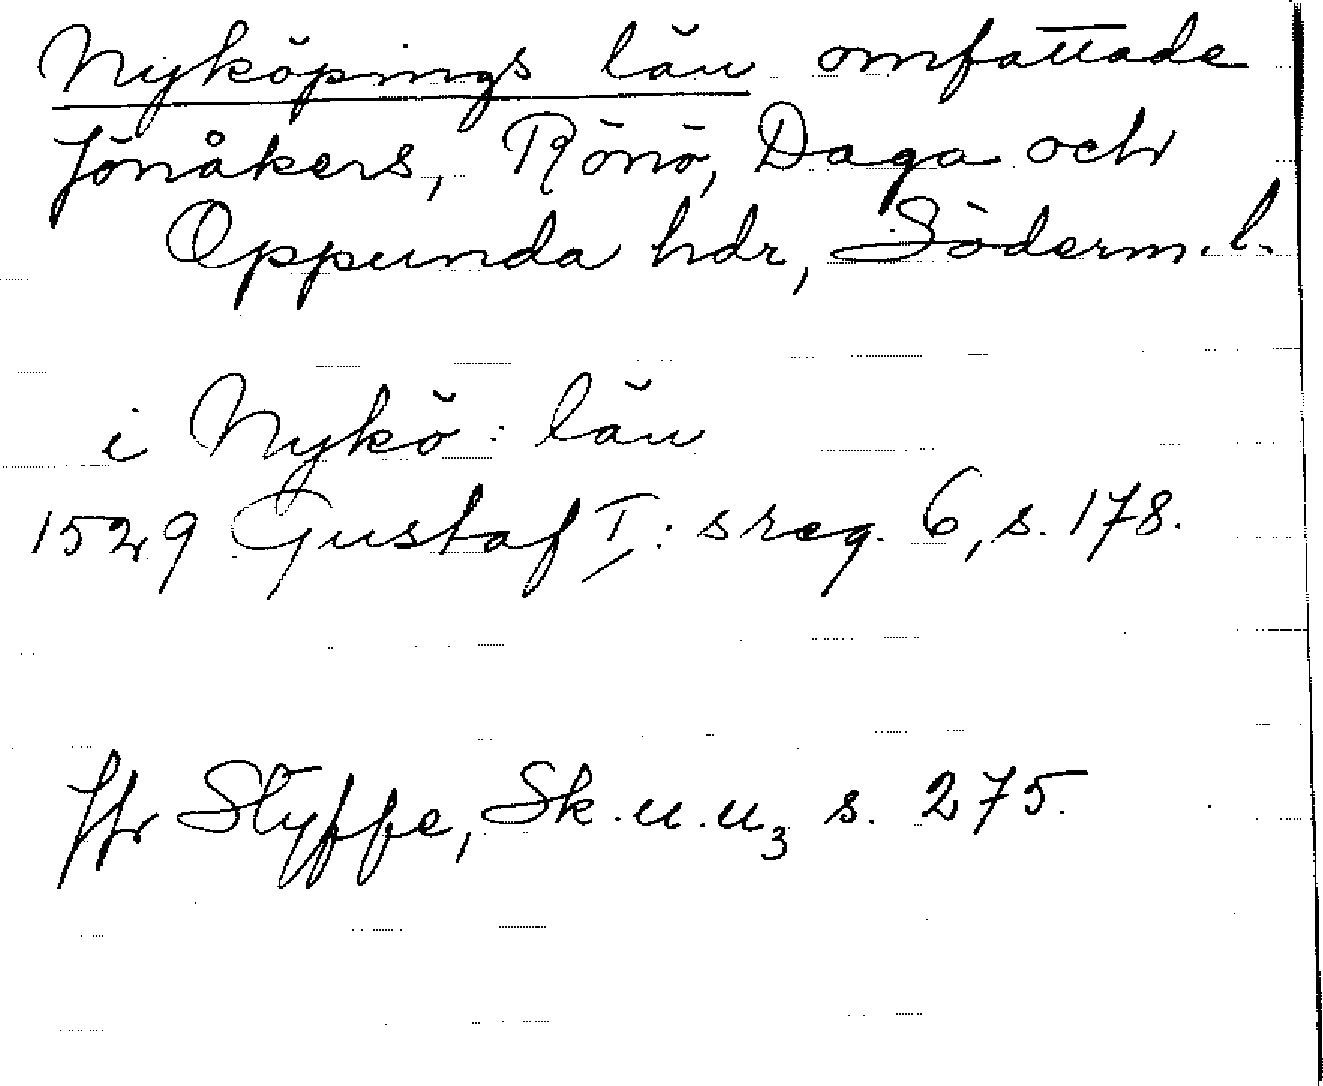 Nyköpings län omfattade
Jönåkers, Rönö, Daga och
Oppunda hdr, Söderm.l.
i Nykö: län
1529 Gustaf I: s reg. 6, s. 178.
Jfr Styffe, Sk.u.u₃ s. 275.